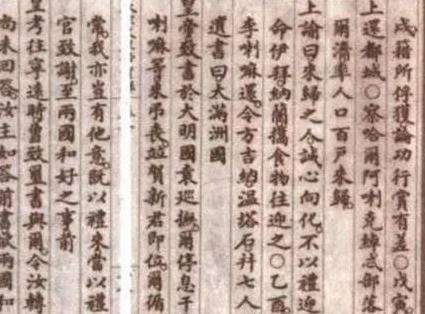 戌籍所俘獲論功行賞有差○戊寅
上還都城○察哈爾阿喇克綽忒部落
爾濟率人口百戶來歸
上諭曰來歸之人誠心向化不以禮迎
命伊拜納蘭攜食物往迎之○乙酉
李喇嘛還令方吉納溫塔石并七人
遺書曰大滿洲國
皇帝致書於大明國袁巡撫爾停息干
喇嘛等來弔喪並賀新君即位爾循
常我亦豈有他意既以禮來當以禮
官致謝至兩國和好之事前
皇考往寧遠時曾致璽書與爾令汝轉
尚未回答汝主如答前書欲兩國和